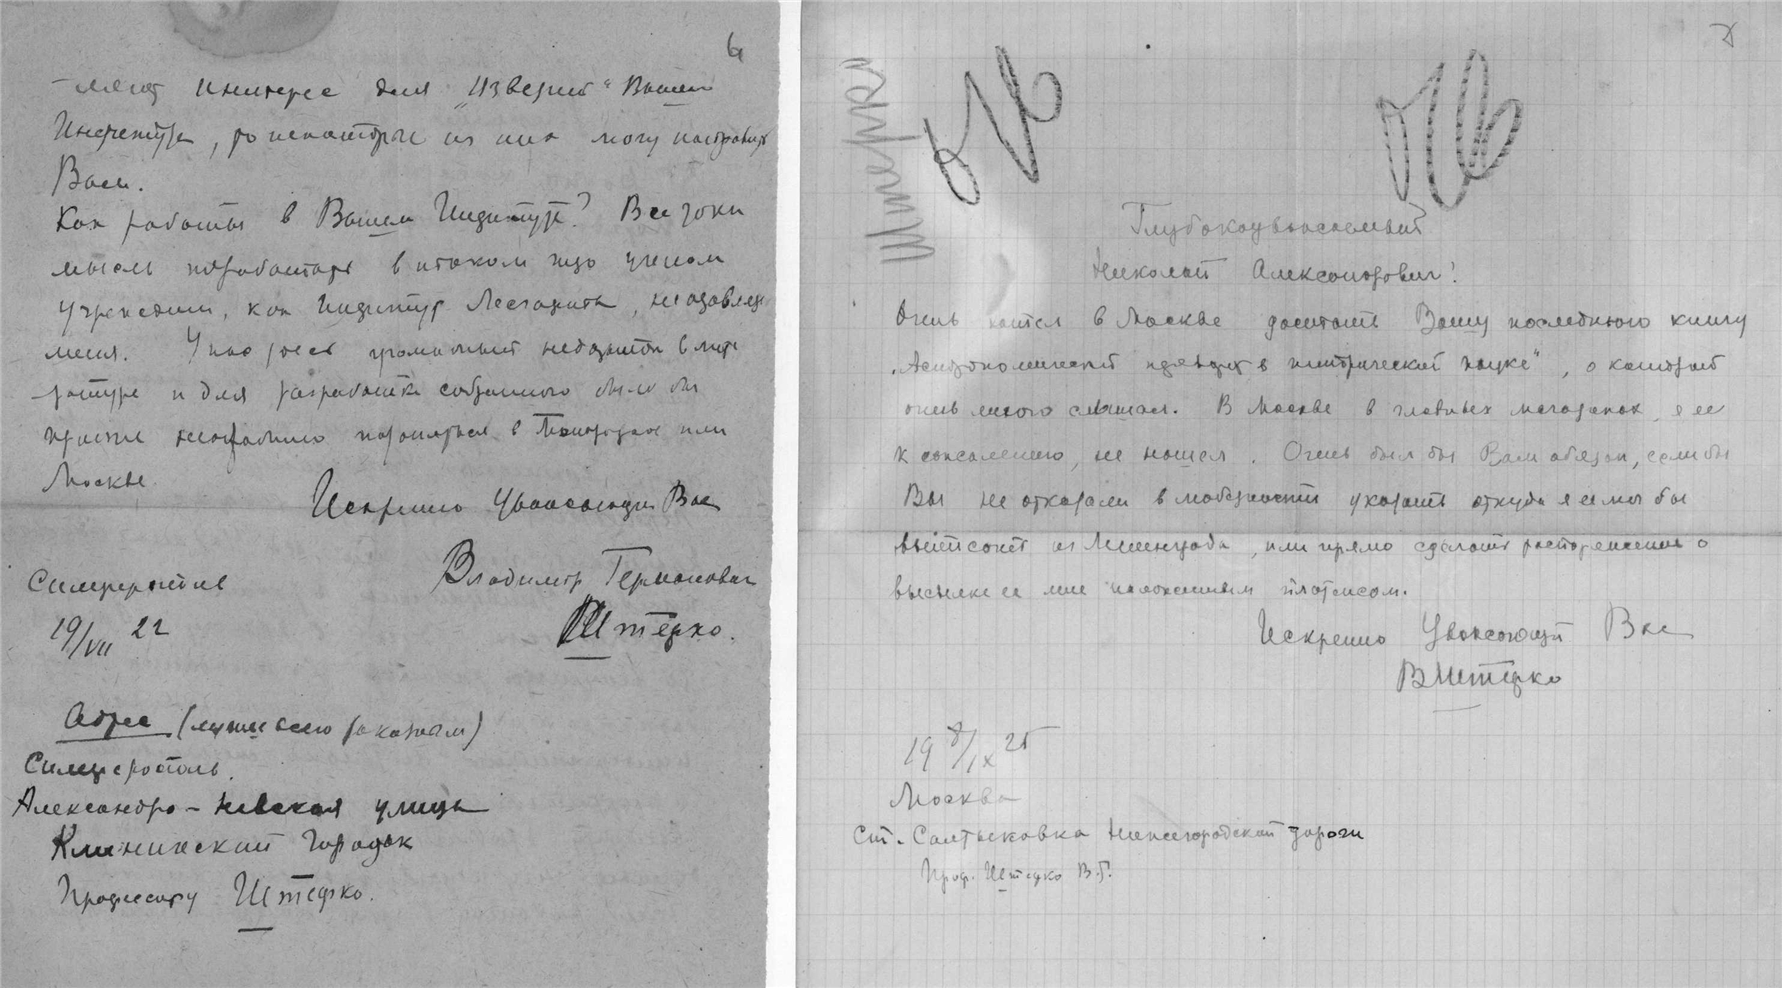 6
интерес для „Известий“ Вашего
Института, то некоторые из них могу направить
Вам.
Как работы в Вашем Институте?
мысль поработать в таком учёном
учреждении, как Институт Лесгафта, не оставляет
меня. У нас здесь громадный недостаток в лите
ратуре и для разработки собранного было бы
прямо необходимо в Петрограде или
Москве.
Искренно Уважающий Вас
Владимир Германович
Штефко.
Симферополь
19/VII 22
Адрес (лучше всего заказным)
Симферополь.
Александро-Невская улица
Клинический городок
Профессору Штефко.
Штефко
Глубокоуважаемый
Николай Александрович!
Очень хотел в Москве достать Вашу последнюю книгу
в исторической науке“, о которой
очень много слышал. В Москве в главных магазинах я ее
к сожалению, не нашел. Очень был бы Вам обязан, если бы
Вы не отказали в любезности указать откуда я ее мог бы
выписать из Ленинграда, или прямо сделать распоряжение о
высылке ее мне наложенным платежом.
Искренно Уважающий Вас
ВШтефко
19 8/IX 25
Москва
Ст. Салтыковка Нижегородской дороги
Проф. Штефко В.Г.